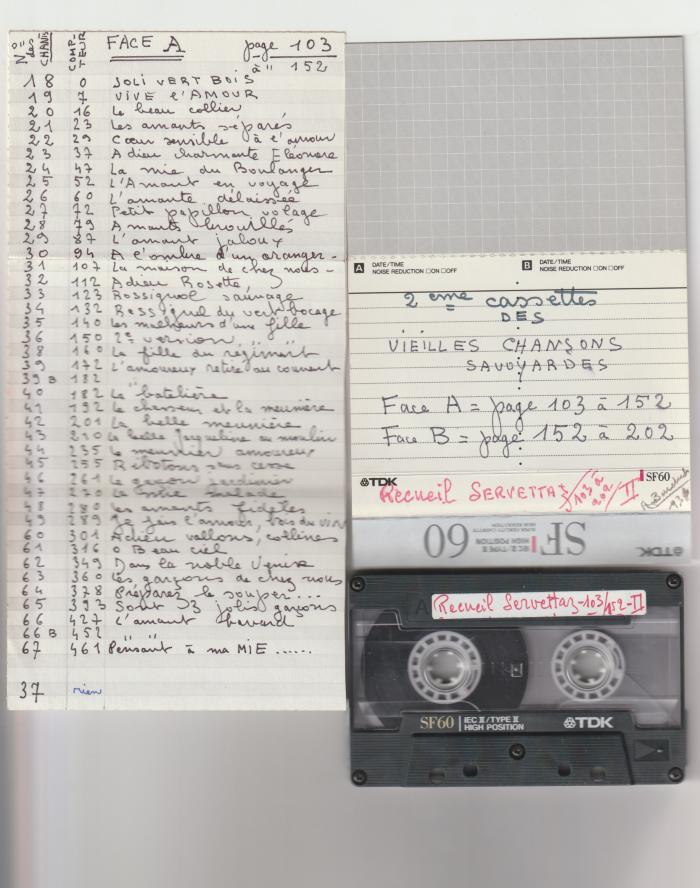 N° des CHANTS COMPTEUR FACE A page 103
à " 152
18 0 JOLI VERT BOIS
19 7 VIVE l'AMOUR
20 16 Le beau collier
21 23 Les amants séparés
22 29 Cœur sensible à l'amour
23 37 Adieu charmante Eléonore
24 47 La mie du Boulanger
25 52 L'Amant en voyage
26 60 L'amante délaissée
27 72 Petit papillon volage
28 79 Amants brouillés
29 87 L'amant jaloux
30 94 A l'ombre d'un oranger -
31 107 La maison de chez nous -
32 112 Adieu Rosette,
33 123 Rossignol sauvage
34 132 Rossignol du vert bocage
35 140 Les malheurs d'une fille
36 150 2e version
38 160 La fille du régiment
39 172 L'amoureux retiré au couvent
39 B 182
40 182 La batelière
41 192 Le chasseur et la meunière
42 201 La belle meunière
43 210 La belle Jacqueline au moulin
44 235 Le meunier amoureux
45 255 Ribotons sans cesse
46 261 Le garçon jardinier
47 270 La mie malade
48 280 Les amants fidèles
49 289 Je fais l'amour, bois du vin
60 301 Adieu vallons, collines
61 316 O Beau ciel
62 349 Dans la noble Venise
63 360 Les garçons de chez nous
64 378 Préparez le souper...
65 393 Sont 3 jolis garçons
66 427 L'amant bavard
66 B 452 " "
67 461 Pensant à ma MIE ......
37 rien
A DATE/TIME
NOISE REDUCTION □ON □OFF
B DATE/TIME
NOISE REDUCTION □ON □OFF
2 eme cassettes
DES
VIEILLES CHANSONS
SAVOYARDES
Face A = page 103 à 152
Face B = page 152 à 202
TDK SF60
Recueil SERVETTAZ 103 à 202 II
SF 60 IEC II/TYPE II HIGH POSITION SUPER FIDELITY CASSETTE TDK
A Recueil Servettaz-103/152-II
SF60 IEC II/TYPE II
HIGH POSITION TDK